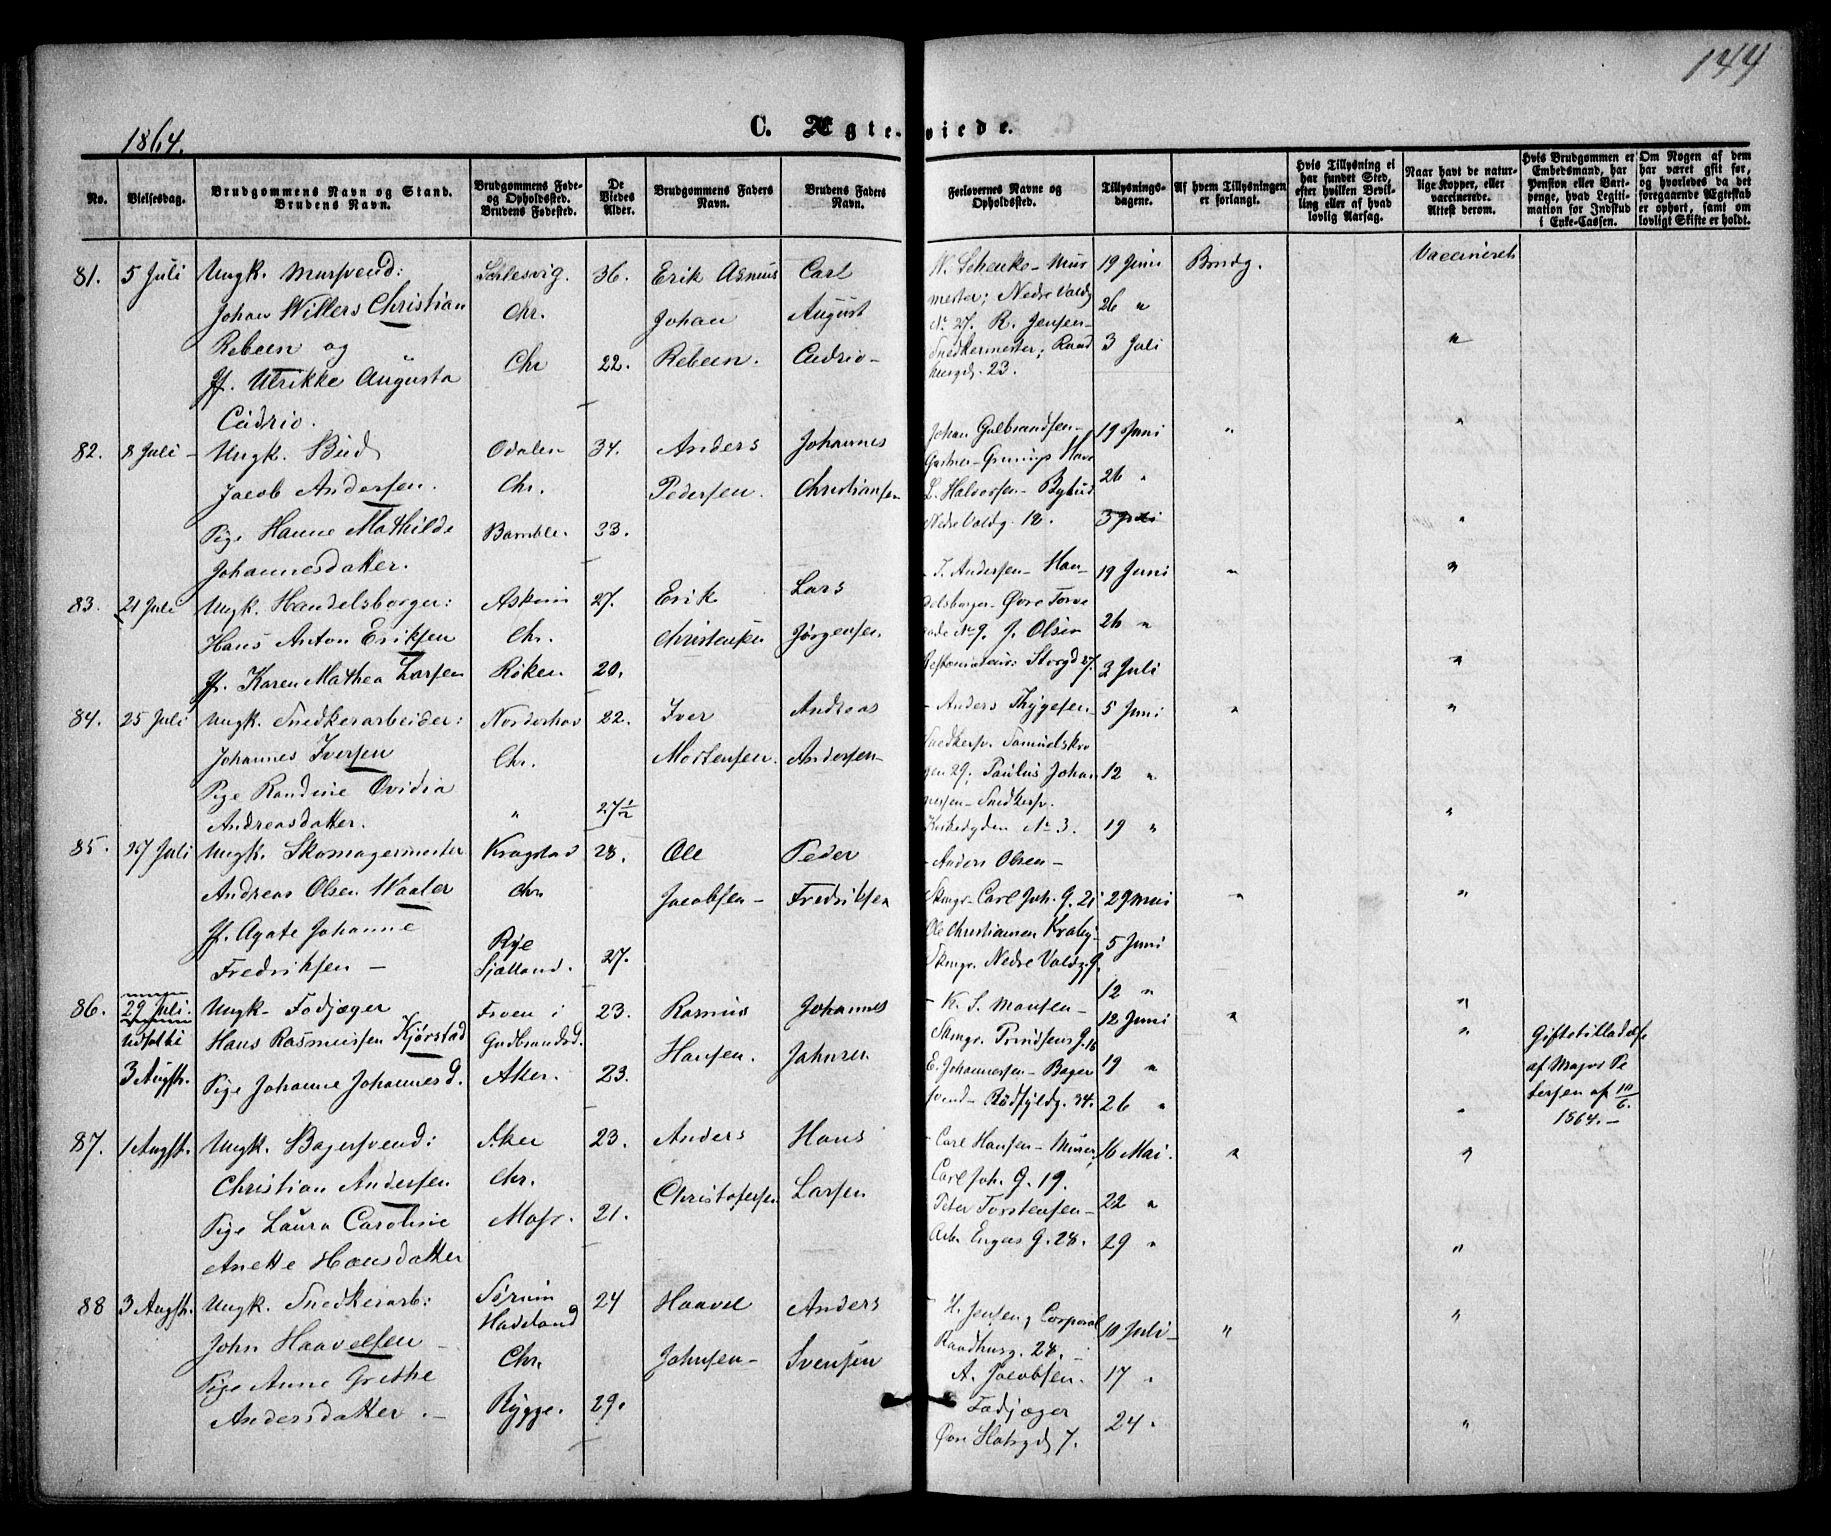 144
1864.
C. Ægteviede.
No.
Vielsesdag.
Brudgommens Navn og Stand.
Brudens Navn.
Brudgommens Føde-
og Opholdssted.
Brudens Fødested.
De
Viedes
Alder.
Brudgommens Faders
Navn.
Brudens Faders
Navn.
Forlovernes Navne og
Opholdssted.
Tillysnings-
dagene.
Af hvem Tillysningen
er forlangt.
Hvis Tillysning ei
har fundet Sted,
efter hvilken Bevil-
ling eller af hvad
lovlig Aarsag.
Naar havt de natur-
lige Kopper, eller
vaccinerede.
Attest derom.
Hvis Brudgommen er
Embedsmand, har
Pension eller Vart-
penge, hvad Legiti-
mation for Indskud
i Enke-Cassen.
Om Nogen af dem
har været gift før,
og hvorledes da det
foregaaende Ægteskab
er ophørt, samt om
lovligt Skifte er holdt.
81. 5 Juli Ungk. Mursvend: Slesvig. 36. Erik Asmus Carl
Johan Willers Christian Chr. Johan August
Rebeen og Chr 22. Rebeen. Cudrio-
Jf. Ulrikke Augusta
Cudrio.
N. Schenke- Mur
mester; Nedre Voldg
No 27. R. Jensen-
Snedkermester; Raad
husgd. 23.
19 Juni Brudg. Vaccineret
26 "
3 Juli "
82. 8 Juli- Ungk. Bud Odalen 34. Anders Johannes
Jacob Andersen. Chr. Pedersen. Christiansen
Pige Hanne Mathilde Bamble. 33.
Johannesdatter.
Johan Gulbrandsen-
Gartner- Havs
L. Halvorsen- Bybud
Nedre Voldg. 18.
19 Juni " "
26 "
3 Juli "
83. 21 Juli Ungk. Handelsborger: Askim 27. Erik Lars
Hans Anton Eriksen Chr. Christensen Jørgensen.
Jf. Karen Mathea Larsen Røken. 20.
- J. Andersen- Han-
delsborger- Øvre Torve
gade No 9. J. Olsen
Restaurateur: Storgd 27.
19 Juni " "
26 "
3 Juli "
84. 25 Juli Ungk. Snedkerarbeider: Norderhov 22. Iver Andreas
Johannes Iversen Chr. Mortensen. Andersen-
Pige Randine Ovidia " 27 1/2
Andreasdatter.
- Anders Thygesen-
Snedkersv. Samuelskro
gen 29. Paulus Johan
nesen- Snedkersv.
Kirkedygden No 3.
5 Juni " "
12 "
19 " "
85. 27 Juli Ungk. Skomagermester Kragstad 28. Ole Peder
Andreas Olsen Waaler Chr Jacobsen- Fredriksen
Jf. Agate Johanne Rye
Fredriksen - Sjælland. 27.
- Anders Olsen-
Skmgr- Carl Joh. G. 21
Ole Christiansen Kraby-
Skmgr. Nedre Voldg. 9.
29 Mai " "
5 Juni
12 "
86. 29 Juli. Ungk- Fodjæger Froen i 23. Rasmus Johannes
udsatte Hans Rasmussen Kjørstad Gudbrandsd. Hansen. Jahnsen
3 Augst. Pige Johanne Johannesd. Aker. 23.
- K. S. Monsen-
Skmgr. Prindsens G. 18
E. Johannessen- Bager
svend-
12 Juni " "
19 " "
26 " "
Giftetilladelse
af Major Pe
tersen af 10/6.
1864.-
87. 1 Augst. Ungk. Bagersvend: Aker 23. Anders Hans
Christian Andersen Chr. Christofersen Larsen
Pige Laura Caroline Moss. 21.
Anette Hansdatter
- Carl Hansen- Murer,
Carl Joh. G. 19.
Peter Torstensen-
Arb. Enges G. 28.
16 Mai. " "
22 "
29 " "
88 3 Augst. Ungk. Snedkerarb: Sørum 24 Haavel Anders
John Haavelsen - Hadeland Johnsen- Svensen
Pige Anne Grethe Chr.
Andersdatter.- Rygge. 29.
- H. Jensen, Corporal
Raadhusg. 28.-
A. Jacobsen.
Fodjæger
Øvre Slotsgd 7.
10 Juli- " "
17 "
24 " "